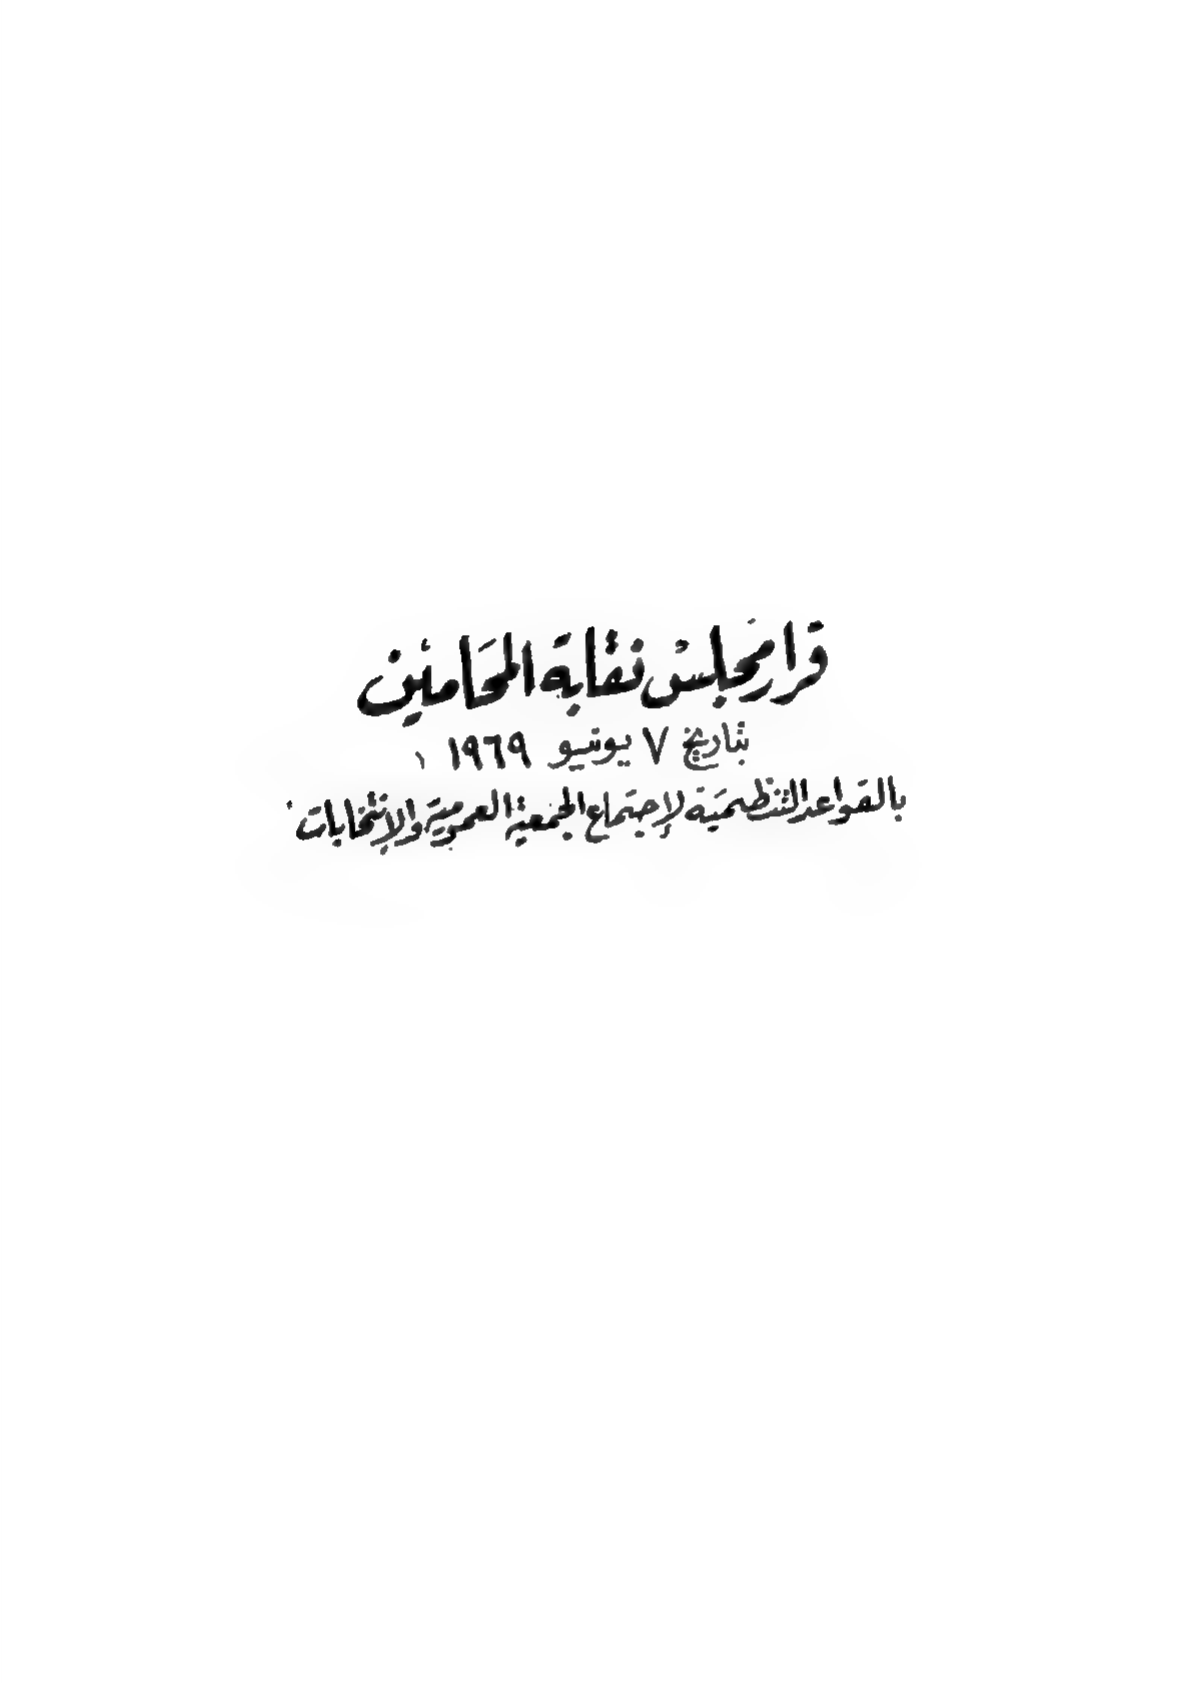 قرار مجلس نقابة المحامين
بتاريخ ٧ يونيو ١٩٦٩
بالقواعد التنظيمية لإجتماع الجمعية العمومية والإنتخابات